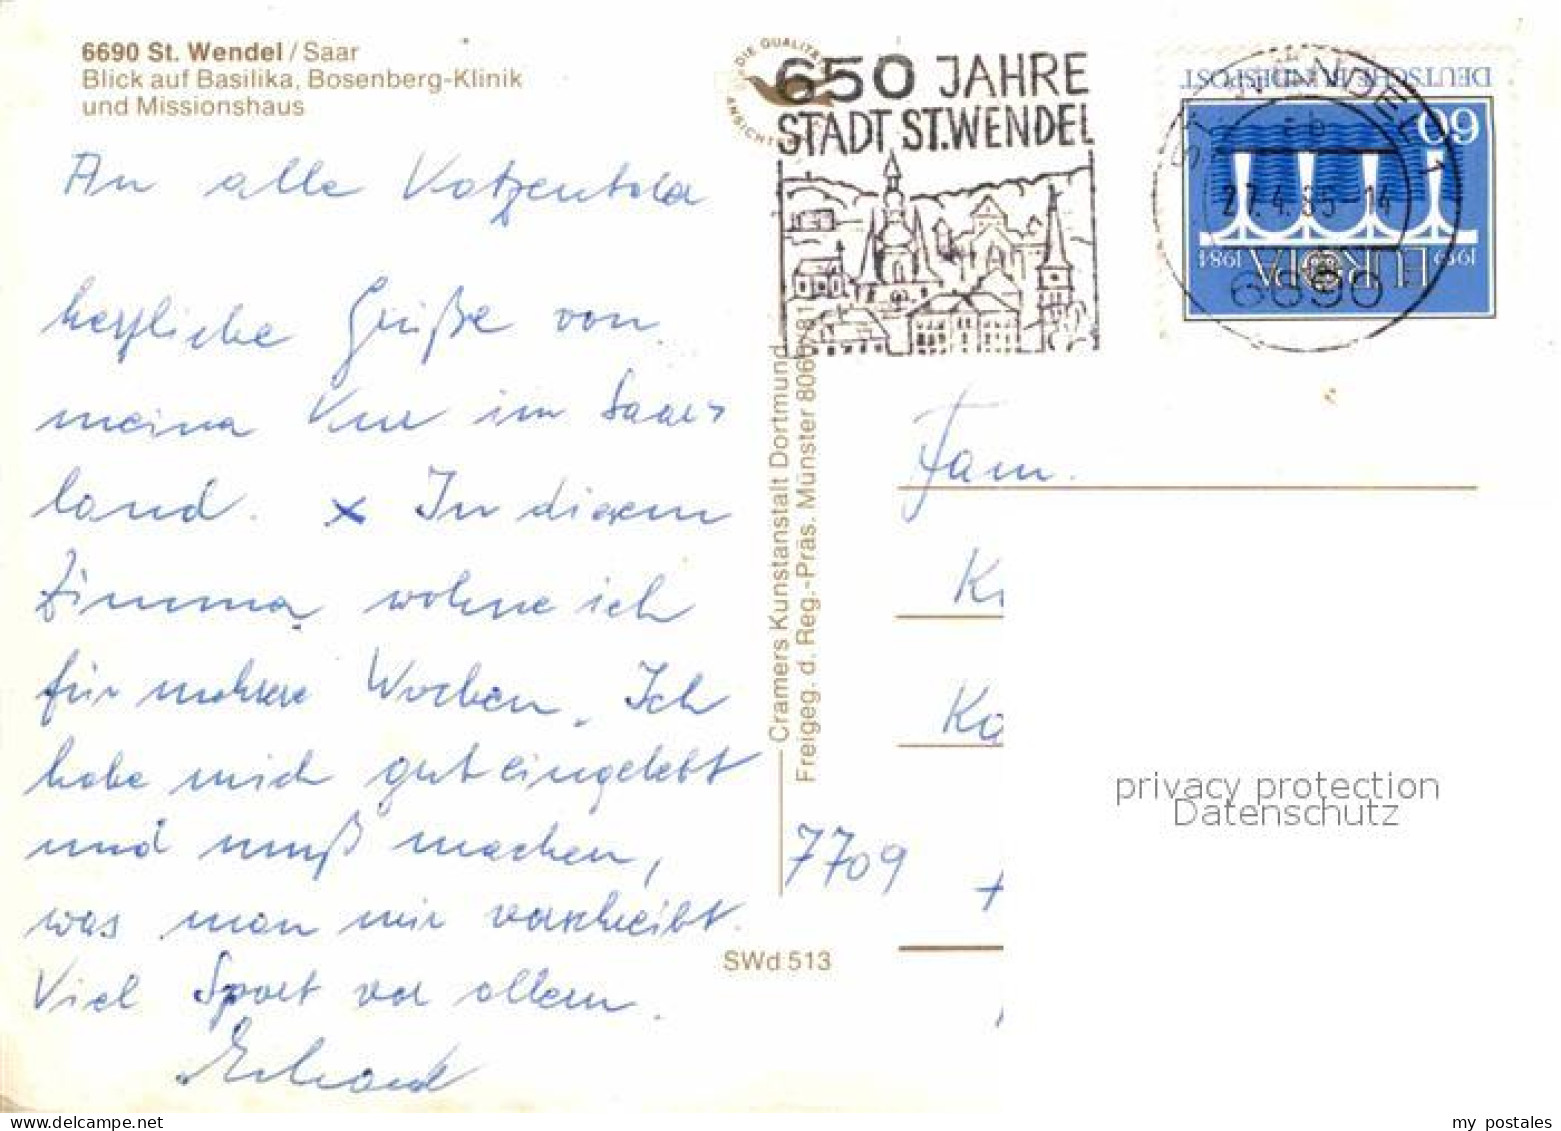 6690 St. Wendel / Saar
Blick auf Basilika, Bosenberg-Klinik
und Missionshaus
An alle
herzliche Grüße von
meiner Kur im Saar-
land. x In diesem
Zimmer wohne ich
für mehrere Wochen. Ich
habe mich gut eingelebt
und muß machen,
was man mir verschreibt.
Viel Sport vor allem.
Erhard
DIE QUALITÄTS
ANSICHTS
650 JAHRE
STADT ST.WENDEL
DEUTSCHE BUNDESPOST
60
1959 1984
EUROPA
ST. WENDEL 1
eb
27.4.85-14
6690
Cramers Kunstanstalt Dortmund
Freigeg. d. Reg.-Präs. Münster
SWd 513
Fam.
7709
privacy protection
Datenschutz
my postales